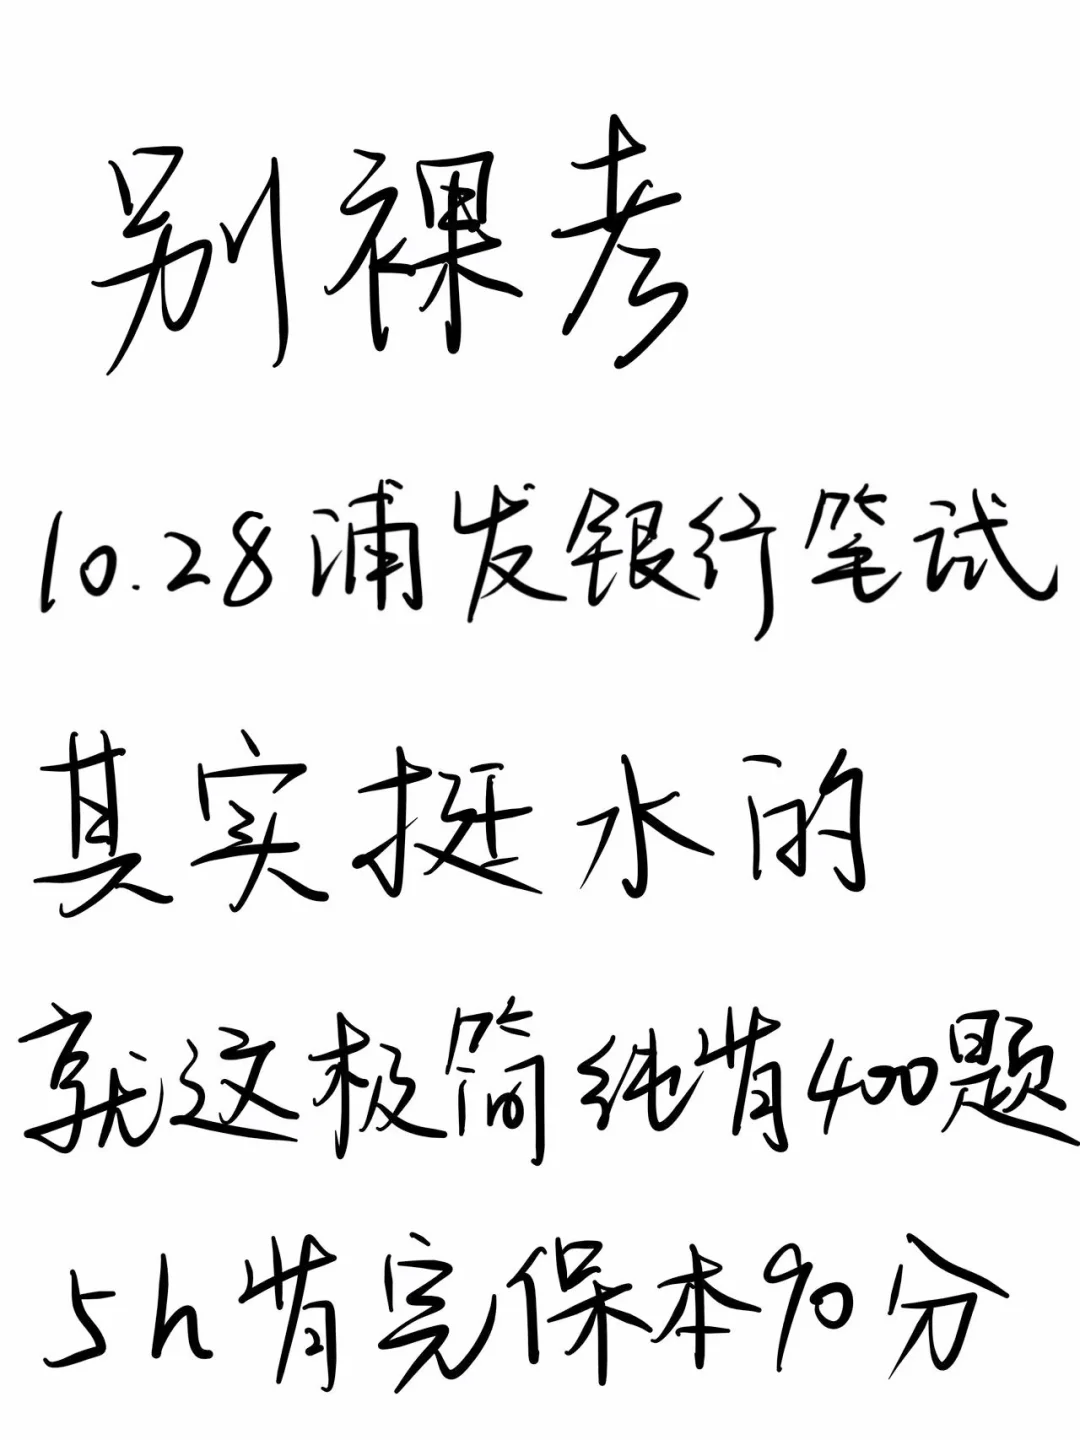 别裸考
10.28浦发银行笔试
其实挺水的
就这极简纯背400题
5h背完保本90分